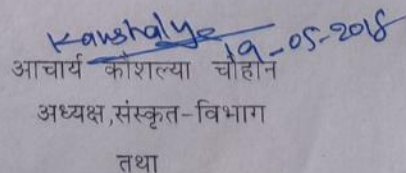 Kaushalya
19-05-2018
आचार्य कौशल्या चौहान
अध्यक्ष,संस्कृत-विभाग
तथा